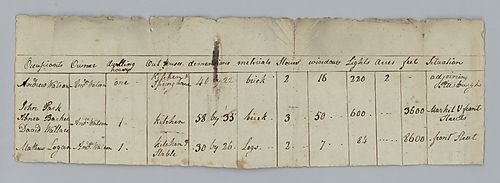 Occupants Owner dwelling house Out houses dementions metirials Stories windows Lights Acres feet Situation
Andrew Watson Andw Watson one Kitchen & Springhouse 46 by 22 brick 2 16 220 2 adjoining Pittsburgh
John Park
Abner Barker Andw Watson 1 Kitchen 58 by 35 brick 3 50 600 3600 Market & front Streets
David Wallace
Mathew Logan Andw Watson 1 Kitchen & Stable 30 by 26 Logs 2 7 84 3600 front Street